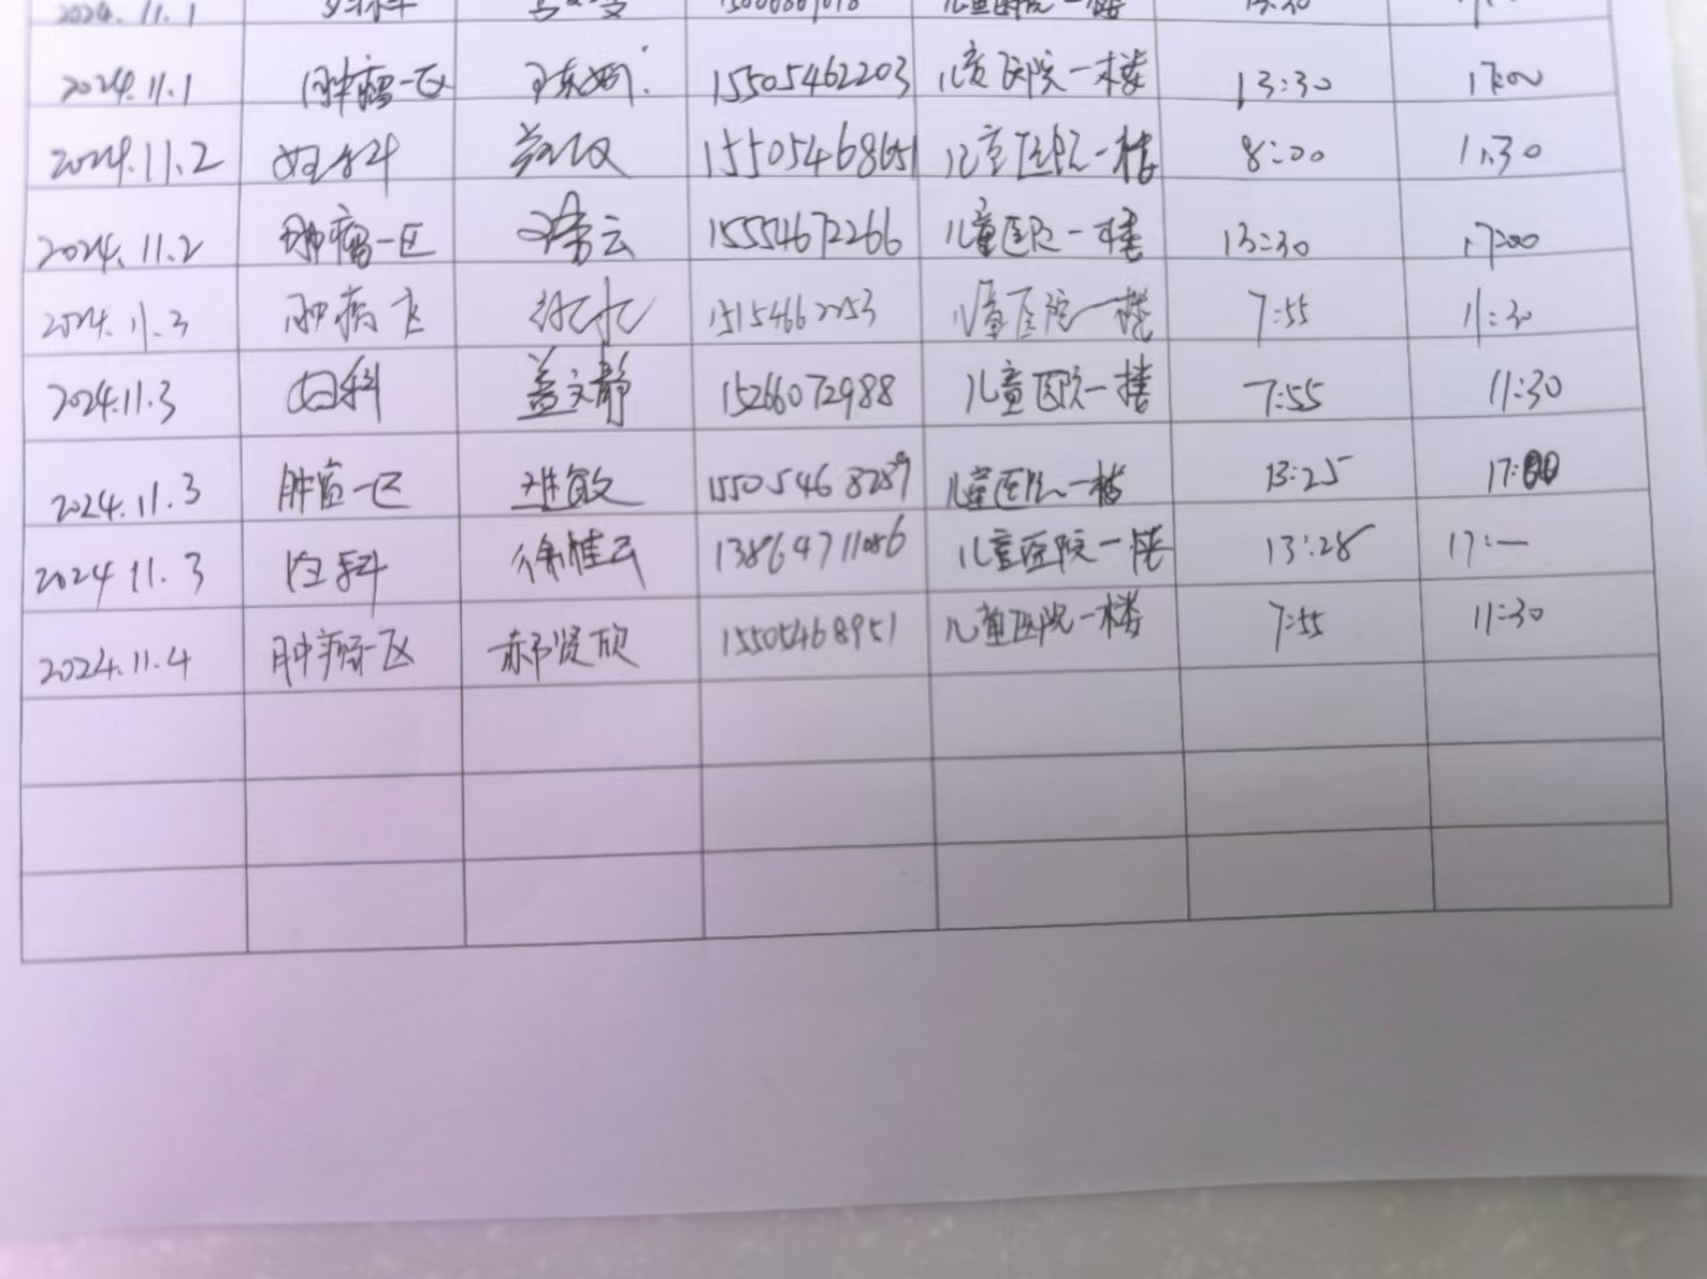 2024.11.1 儿童医院一楼 13:30
2024.11.1 肿瘤一区 15505462203 儿童医院一楼 13:30 17:00
2024.11.2 妇科 15505468651 儿童医院一楼 8:00 11:30
2024.11.2 肿瘤一区 云 15554672266 儿童医院一楼 13:30 17:00
2024.11.3 肿瘤 15154662253 儿童医院一楼 7:55 11:30
2024.11.3 妇科 盖文静 15266072988 儿童医院一楼 7:55 11:30
2024.11.3 肿瘤一区 敏 儿童医院一楼 13:25 17:00
2024 11.3 徐桂云 13864711086 儿童医院一楼 13:28 17:—
2024.11.4 肿瘤一区 郝贤欣 15505468951 儿童医院一楼 7:55 11:30